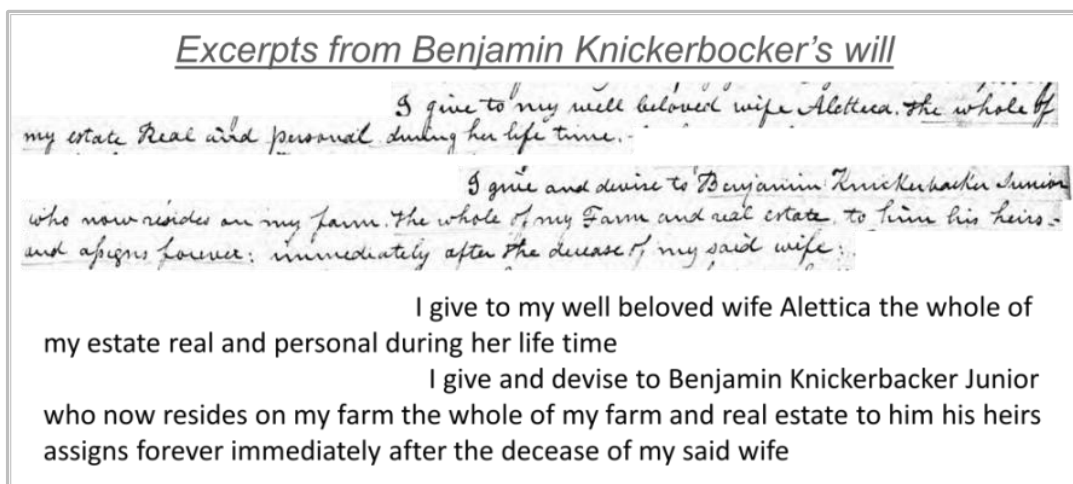 Excerpts from Benjamin Knickerbocker's will
I give to my well beloved wife Alettica. the whole of
my estate Real and personal during her life time.
I give and devise to Benjamin Knickerbacker Junior
who now resides on my farm. the whole of my Farm and real estate. to him his heirs
and assigns forever: immediately after the decease of my said wife:
I give to my well beloved wife Alettica the whole of
my estate real and personal during her life time
I give and devise to Benjamin Knickerbacker Junior
who now resides on my farm the whole of my farm and real estate to him his heirs
assigns forever immediately after the decease of my said wife